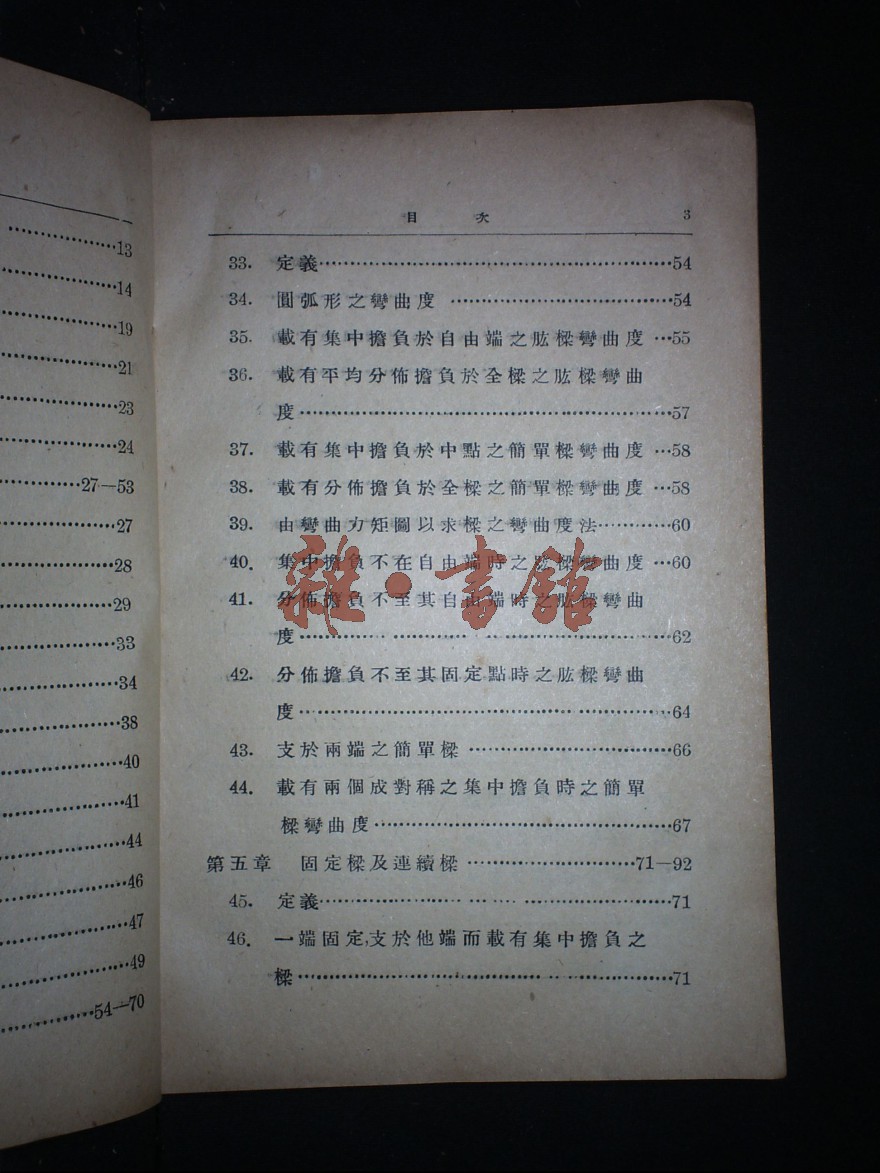 13
14
19
21
23
24
27—53
27
28
29
33
34
38
40
41
44
46
47
49
54—70
目 次 3
33. 定義……54
34. 圓弧形之彎曲度……54
35. 載有集中擔負於自由端之肱樑彎曲度…55
36. 載有平均分佈擔負於全樑之肱樑彎曲
度……57
37. 載有集中擔負於中點之簡單樑彎曲度…58
38. 載有分佈擔負於全樑之簡單樑彎曲度…58
39. 由彎曲力矩圖以求樑之彎曲度法……60
40. 集中擔負不在自由端時之肱樑彎曲度…60
41. 分佈擔負不至其自由端時之肱樑彎曲
度……62
42. 分佈擔負不至其固定點時之肱樑彎曲
度……64
43. 支於兩端之簡單樑……66
44. 載有兩個成對稱之集中擔負時之簡單
樑彎曲度……67
第五章 固定樑及連續樑……71—92
45. 定義……71
46. 一端固定,支於他端而載有集中擔負之
樑……71
雜·書館